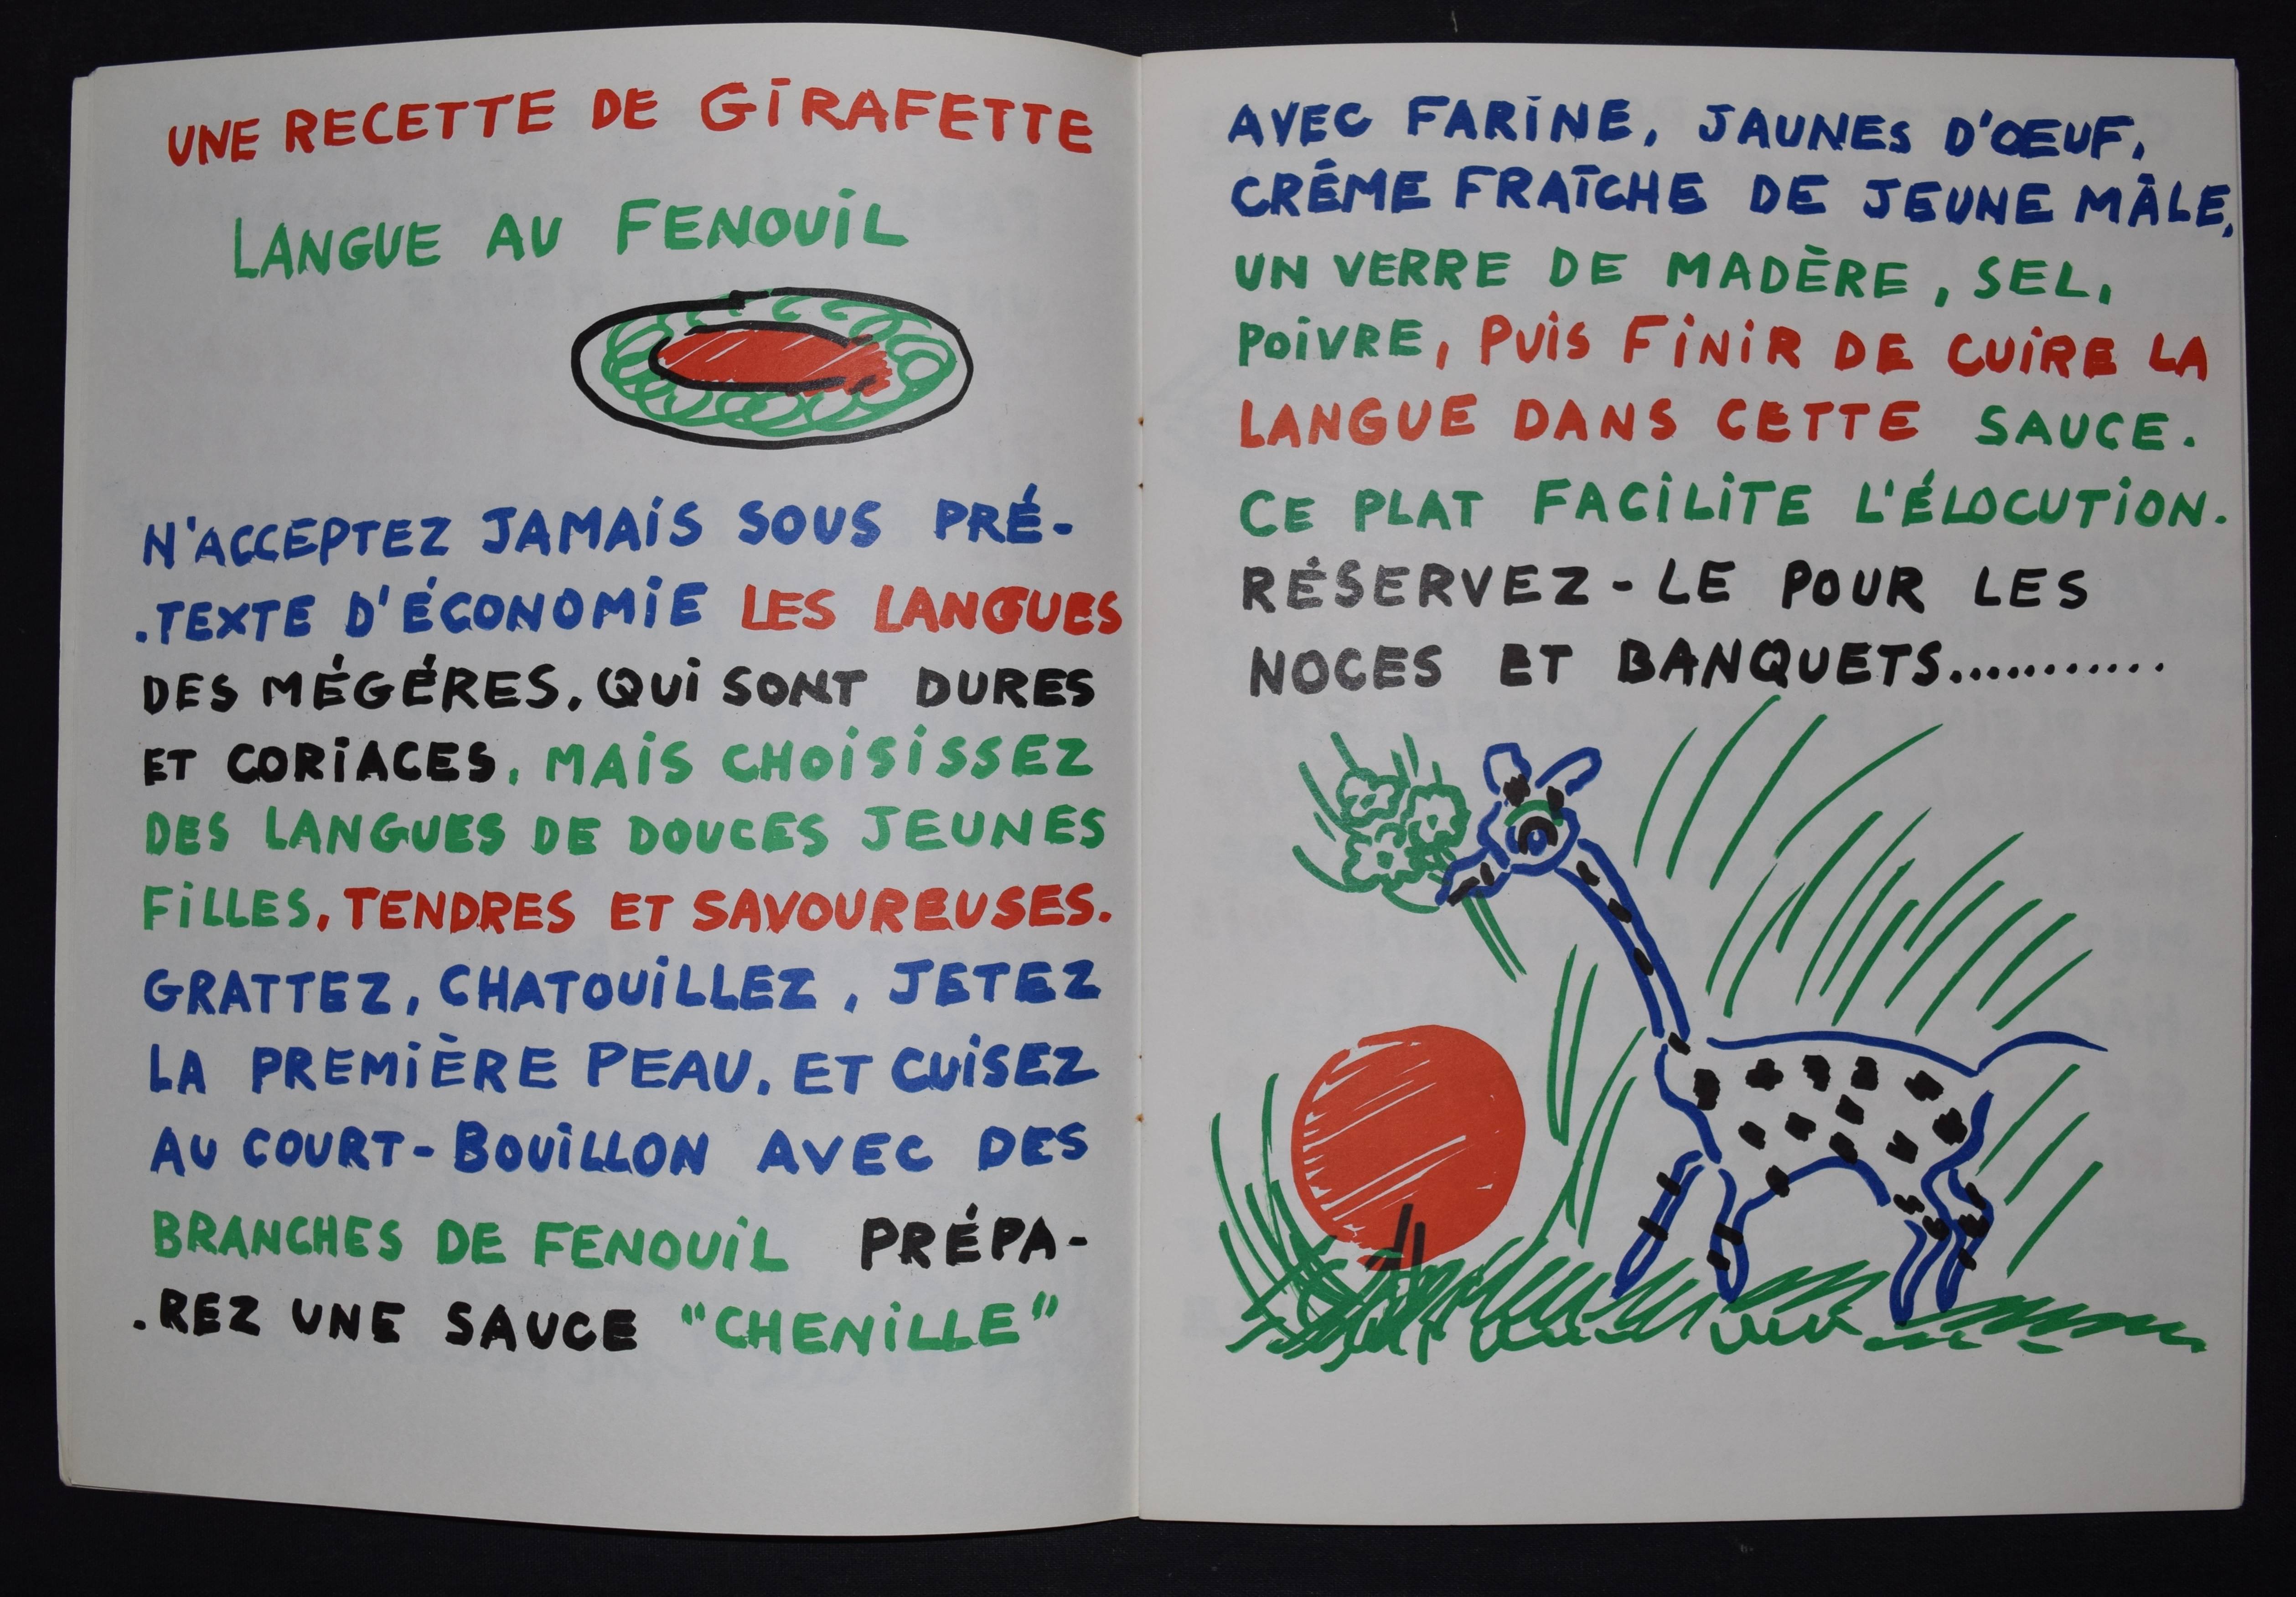 UNE RECETTE DE GIRAFETTE
LANGUE AU FENOUIL
N'ACCEPTEZ JAMAIS SOUS PRÉ-
.TEXTE D'ÉCONOMIE LES LANGUES
DES MÉGÉRES, QUI SONT DURES
ET CORIACES, MAIS CHOISISSEZ
DES LANGUES DE DOUCES JEUNES
FILLES, TENDRES ET SAVOUREUSES.
GRATTEZ, CHATOUILLEZ, JETEZ
LA PREMIÈRE PEAU, ET CUISEZ
AU COURT-BOUILLON AVEC DES
BRANCHES DE FENOUIL PRÉPA-
.REZ UNE SAUCE "CHENILLE"
AVEC FARINE, JAUNES D'OEUF,
CRÉME FRAÎCHE DE JEUNE MÂLE,
UN VERRE DE MADÈRE, SEL,
POIVRE, PUIS FINIR DE CUIRE LA
LANGUE DANS CETTE SAUCE.
CE PLAT FACILITE L'ÉLOCUTION.
RÉSERVEZ-LE POUR LES
NOCES ET BANQUETS...........